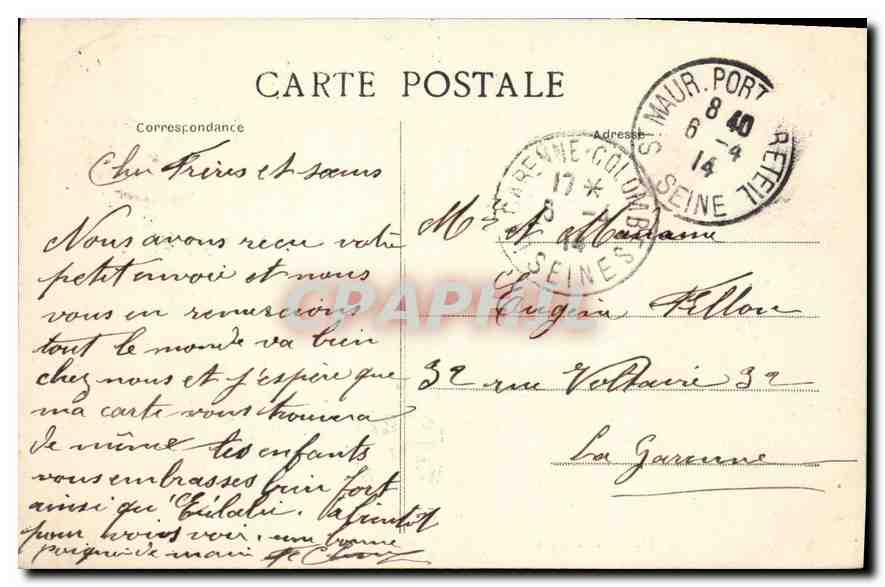 CARTE POSTALE
Correspondance
Adresse
Cher Frères et sœurs
Nous avons recu votre
petit envoie et nous
vous en remercions
tout le monde va bien
chez nous et j'espère que
ma carte vous trouvera
de même les enfants
vous embrasses bien fort
ainsi qu'Eulalie. à bientôt
pour vous voir. une bonne
poignée de main
Mr et Madame
Eugène Fillon
32 rue Voltaire 32
La Garenne
LA GARENNE-COLOMBES
17 *
6 -4
14
SEINE
ST MAUR. PORT CRETEIL
8 40
6 -4
14
SEINE
CPAPHIL